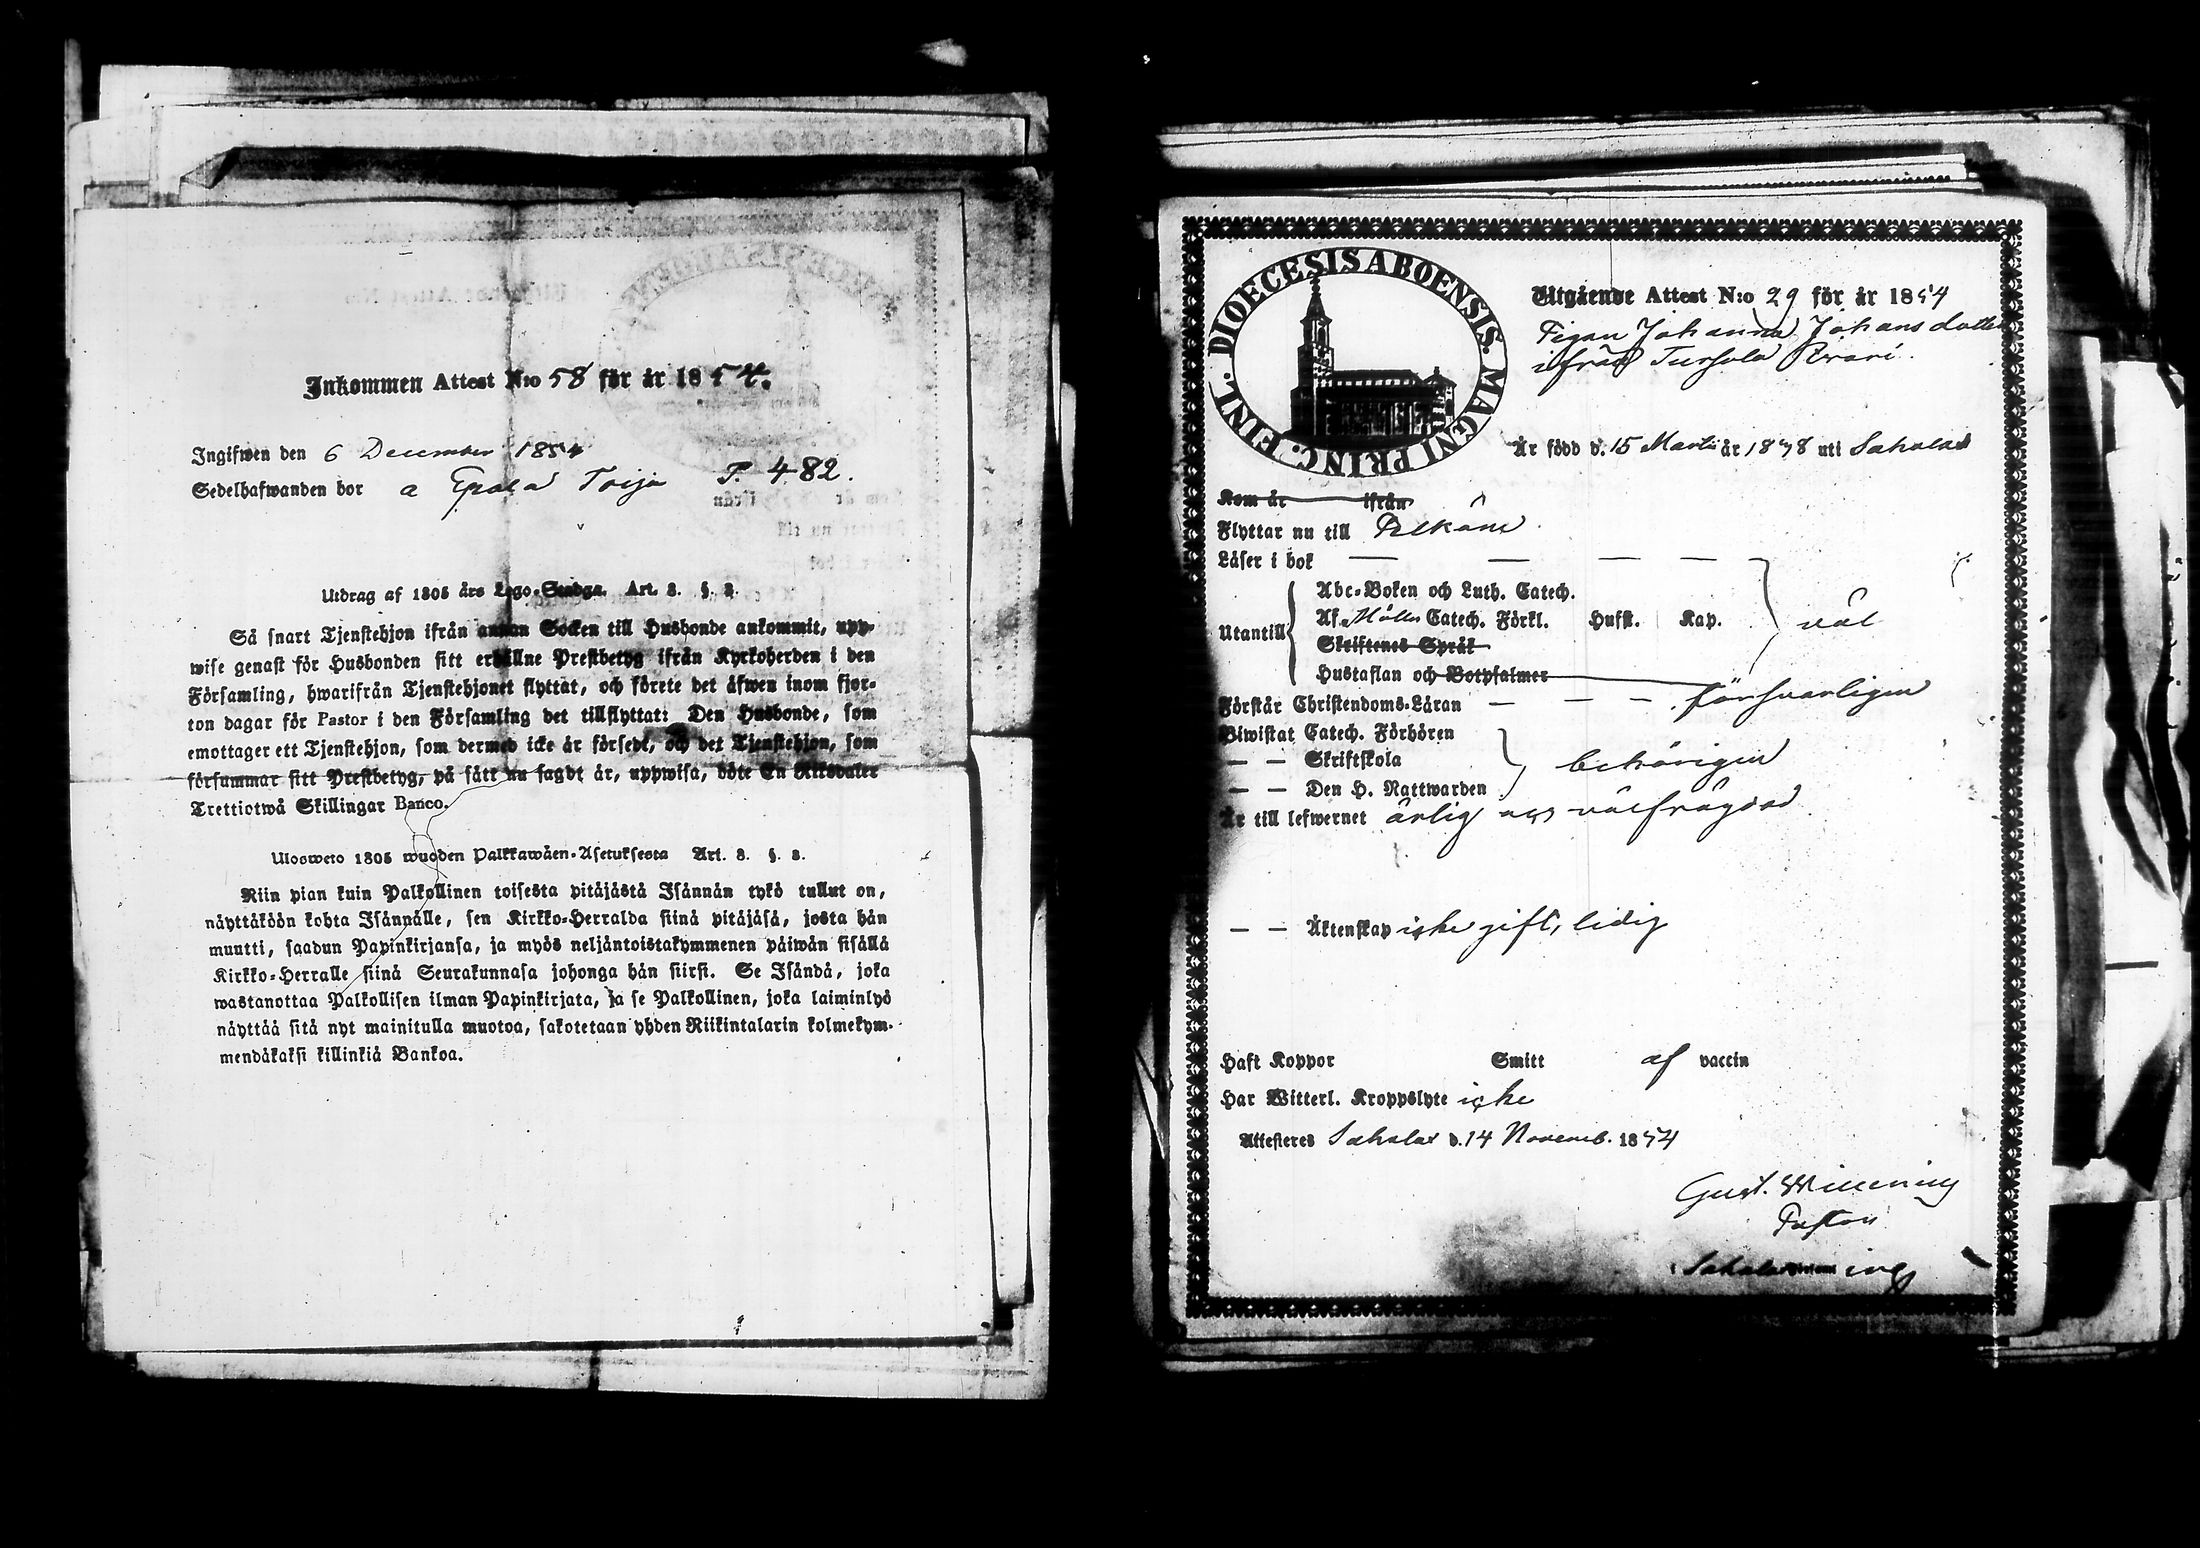 Inkommen Attest N:o 58 för år 1854.
Ingifwen den 6 December 1854
Sedelhafwanden bor a Toija P. 482.
Utdrag af 1805 års Lego-Stadga. Art. 8. §. 8.
Så snart Tjenstehjon ifrån annan Socken till Husbonde ankommit, upp-
wise genast för Husbonden sitt erhållne Prestbetyg ifrån Kyrkoherden i den
Församling, hwarifrån Tjenstehjonet flyttat, och förete det äfwen inom fjor-
ton dagar för Pastor i den Församling det tillflyttat: Den Husbonde, som
emottager ett Tjenstehjon, som dermed icke är försedt, och det Tjenstehjon, som
försummar sitt Prestbetyg, på sätt nu sagdt är, uppwisa, böte En Riksdaler
Trettiotwå Skillingar Banco.
Ulosweto 1805 wuoden Palkkawäen-Asetuksesta Art. 8. §. 8.
Niin pian kuin Palkollinen toisesta pitäjästä Isännän tykö tullut on,
näyttäköön kohta Isännälle, sen Kirkko-Herralda siinä pitäjäsä, josta hän
muutti, saadun Papinkirjansa, ja myös neljäntoistakymmenen päiwän sisällä
Kirkko-Herralle siinä Seurakunnasa johonga hän siirsi. Se Isändä, joka
wastanottaa Palkollisen ilman Papinkirjata, ja se Palkollinen, joka laiminlyö
näyttää sitä nyt mainitulla muotoa, sakotetaan yhden Riikintalarin kolmekym-
mendäkaksi killinkiä Bankoa.
DIOECESIS ABOENSIS. MAGNI PRINC. FINL.
Utgående Attest N:o 29 för år 1854
Pigan Johanna Johansdotter
ifrån Tursola Prari
Är född d. 15 Martii år 1838 uti Sahalax
Kom år ifrån
Flyttar nu till Pelkäne
Läser i bok — — — —
Abc-Boken och Luth. Catech.
Utantill Af Möllers Catech. Förkl. Hufst. Kap. väl
Skriftenes Språk
Hustaflan och Botpsalmer
Förstår Christendoms-Läran — — — försvarligen
Biwistat Catech. Förhören
— — Skriftskola behörigen
— — Den H. Nattwarden
Är till lefwernet ärlig och välfrägdad
— — Äktenskap icke gift, ledig
Haft Koppor Smitt af vaccin
Har Witterl. Kroppslyte icke
Attesteres Sahalax d. 14 Novemb. 1854
Gust. Winning
Pastor
i Sahalax